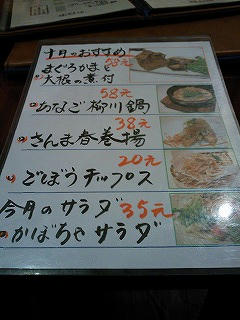 十月のおすすめ
まぐろかまと 68元
大根の煮付
58元
あなご柳川鍋
38元
さんま春巻揚
20元
ごぼうチップス
今月のサラダ 35元
かぼちゃサラダ